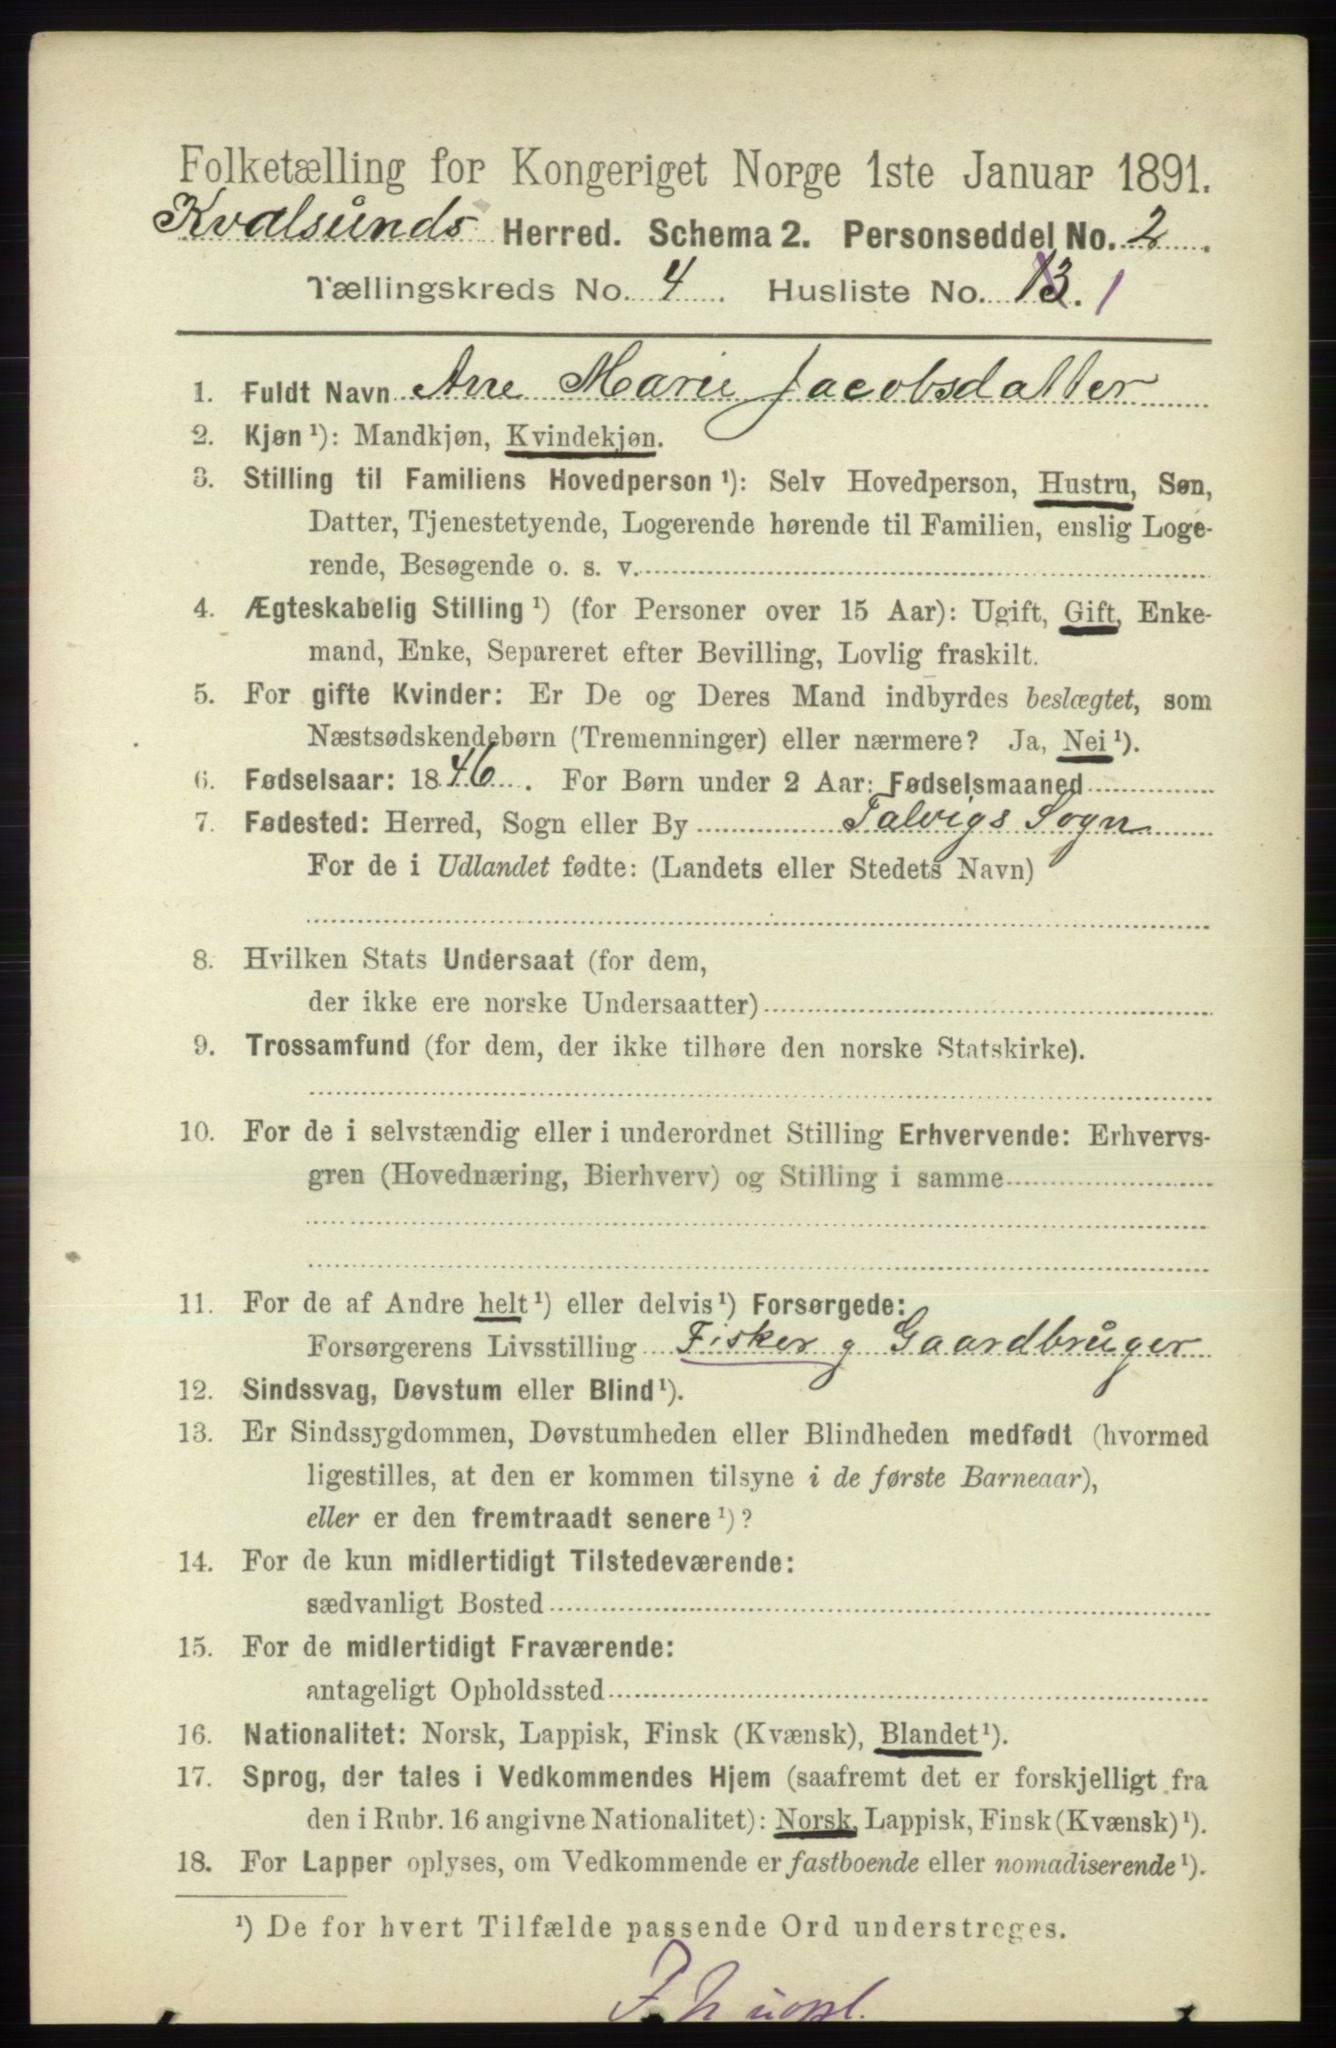 Folketælling for Kongeriget Norge 1ste Januar 1891.
Kvalsunds Herred. Schema 2. Personseddel No. 2.
Tællingskreds No. 4. Husliste No. 13. 1
1. Fuldt Navn Ane Marie Jacobsdatter
2. Kjøn ¹): Mandkjøn, Kvindekjøn.
3. Stilling til Familiens Hovedperson ¹): Selv Hovedperson, Hustru, Søn,
Datter, Tjenestetyende, Logerende hørende til Familien, enslig Loge-
rende, Besøgende o. s. v.
4. Ægteskabelig Stilling ¹) (for Personer over 15 Aar): Ugift, Gift, Enke-
mand, Enke, Separeret efter Bevilling, Lovlig fraskilt.
5. For gifte Kvinder: Er De og Deres Mand indbyrdes beslægtet, som
Næstsødskendebørn (Tremenninger) eller nærmere? Ja, Nei ¹).
6. Fødselsaar: 1846. For Børn under 2 Aar: Fødselsmaaned
7. Fødested: Herred, Sogn eller By Talvigs Sogn
For de i Udlandet fødte: (Landets eller Stedets Navn)
8. Hvilken Stats Undersaat (for dem,
der ikke ere norske Undersaatter)
9. Trossamfund (for dem, der ikke tilhøre den norske Statskirke).
10. For de i selvstændig eller i underordnet Stilling Erhvervende: Erhvervs-
gren (Hovednæring, Bierhverv) og Stilling i samme
11. For de af Andre helt ¹) eller delvis ¹) Forsørgede:
Forsørgerens Livsstilling Fisker g Gaardbruger
12. Sindssvag, Døvstum eller Blind ¹).
13. Er Sindssygdommen, Døvstumheden eller Blindheden medfødt (hvormed
ligestilles, at den er kommen tilsyne i de første Barneaar),
eller er den fremtraadt senere ¹)?
14. For de kun midlertidigt Tilstedeværende:
sædvanligt Bosted
15. For de midlertidigt Fraværende:
antageligt Opholdssted
16. Nationalitet: Norsk, Lappisk, Finsk (Kvænsk), Blandet ¹).
17. Sprog, der tales i Vedkommendes Hjem (saafremt det er forskjelligt fra
den i Rubr. 16 angivne Nationalitet): Norsk, Lappisk, Finsk (Kvænsk) ¹).
18. For Lapper oplyses, om Vedkommende er fastboende eller nomadiserende ¹).
¹) De for hvert Tilfælde passende Ord understreges.